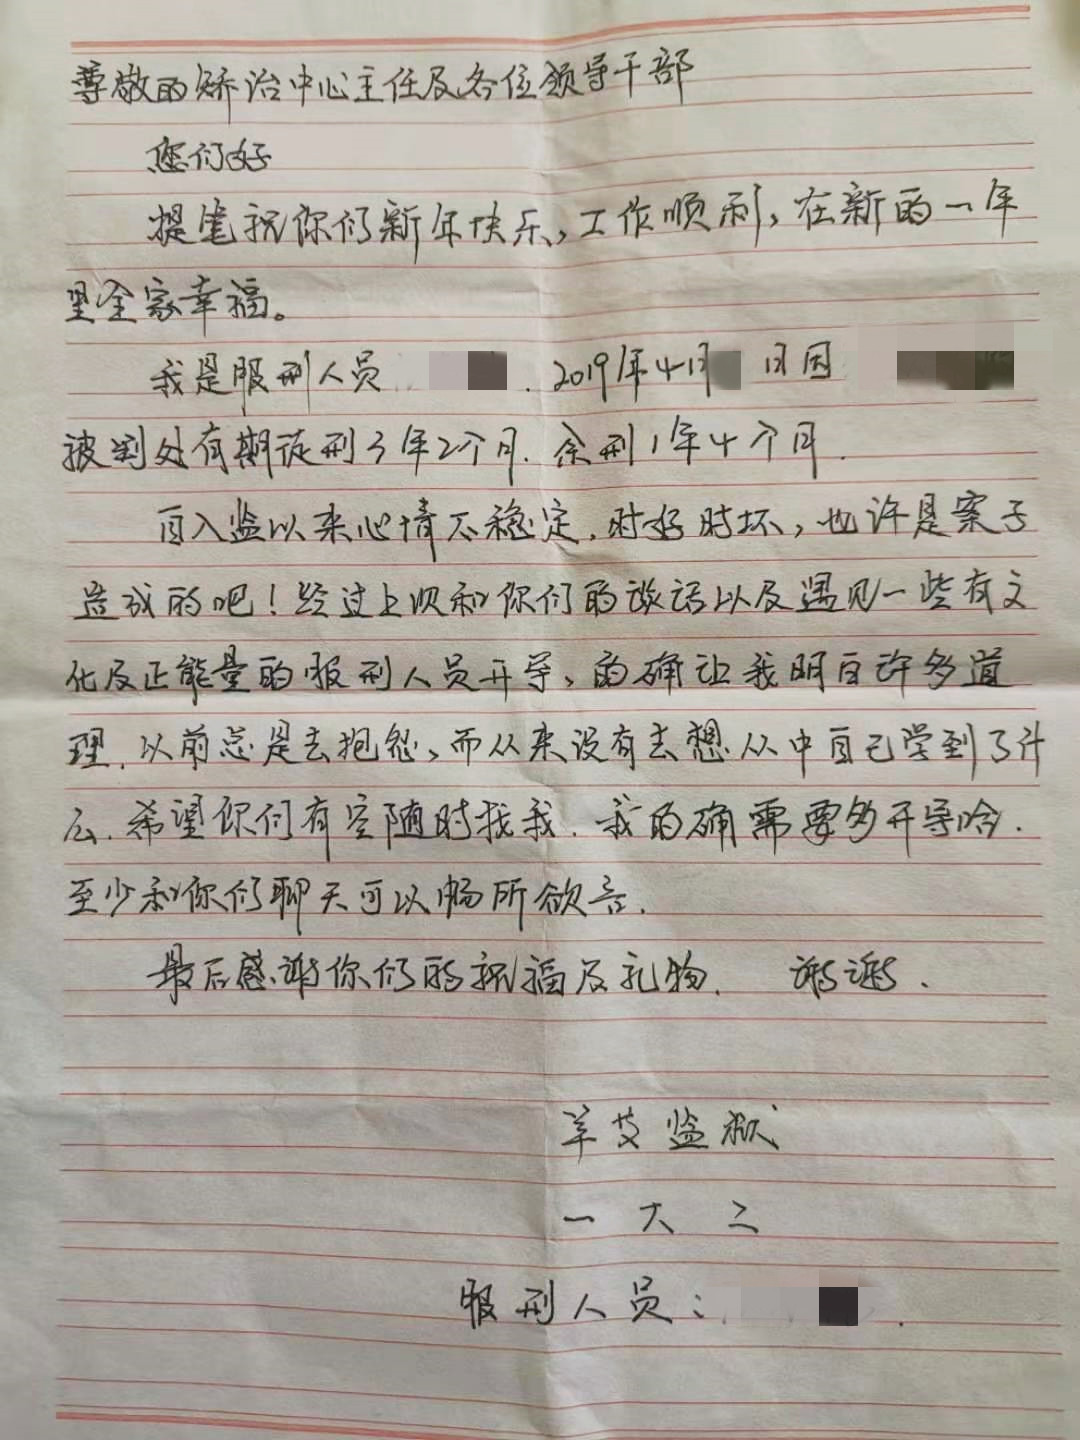 尊敬的矫治中心主任及各位领导干部
您们好
提笔祝你们新年快乐、工作顺利，在新的一年
里全家幸福。
我是服刑人员 . 2019年4月 日因
被判处有期徒刑3年2个月. 余刑1年4个月.
自入监以来心情不稳定.时好时坏，也许是案子
造成的吧！经过上次和你们的谈话以及遇见一些有文
化及正能量的服刑人员开导、的确让我明白许多道
理.以前总是去抱怨、而从来没有去想从中自己学到了什
么.希望你们有空随时找我.我的确需要多开导哈.
至少和你们聊天可以畅所欲言.
最后感谢你们的祝福及礼物. 谢谢.
监狱
一大二
服刑人员：.